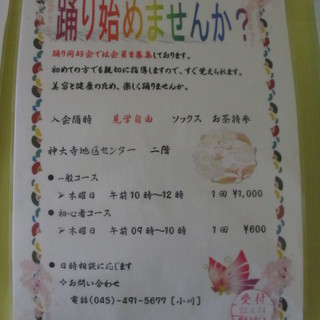 踊り始めませんか?
踊り同好会では会員を募集しております。
初めての方でも親切に指導しますので、すぐ覚えられます。
美容と健康のため、楽しく踊りませんか。
入会随時 見学自由 ソックス お茶持参
神大寺地区センター 二階
● 一般コース
➢ 木曜日 午前10時〜12時 1回 ¥1,000
● 初心者コース
➢ 木曜日 午前09時〜10時 1回 ¥600
● 日時相談に応じます
❖お問い合わせ
電話(045)-491-5677 [小川]
受付